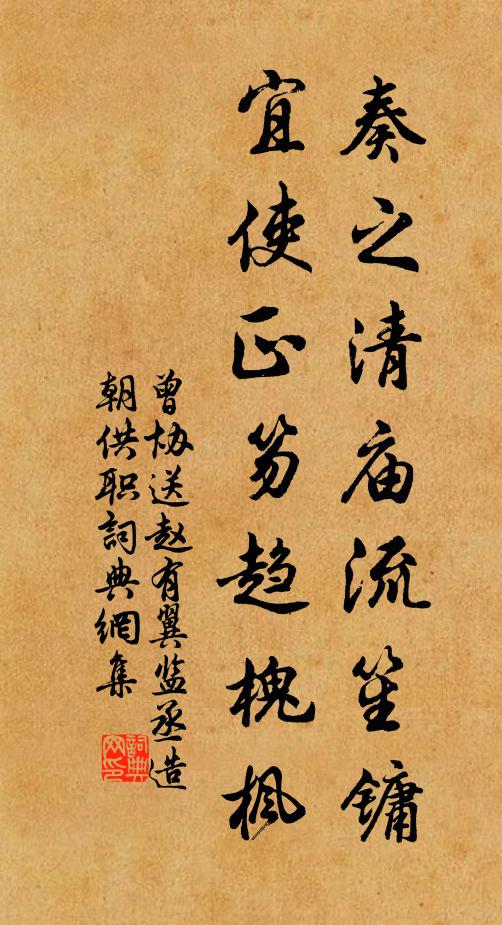 奏之清庙流笙镛
宜使正笏趋槐枫
曾协送赵有翼监丞造
朝供职詞典網集
詞典网印